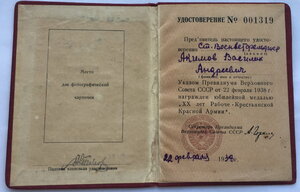 Место
для фотографической
карточки
УДОСТОВЕРЕНИЕ № 001319
Предъявитель настоящего удосто-
верения Ст. Военветфельдшер
Акимов Василий
Андреевич
Указом Президиума Верховного
Совета СССР от 22 февраля 1938 г.
награжден юбилейной медалью
„XX лет Рабоче-Крестьянской
Красной Армии“.
Секретарь Президиума
Верховного Совета СССР
22 февраля 1938 г.